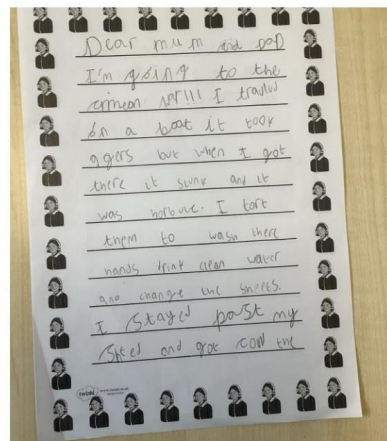 Dear mum and DaD
I'm going to the
crimean war!!! I travled
on a boat it took
agers but when I got
there it stunk and it
was horbuve. I tort
them to wash there
hands drink clean water
and change the sheets.
I stayed poust my
and got coll the
twinkl